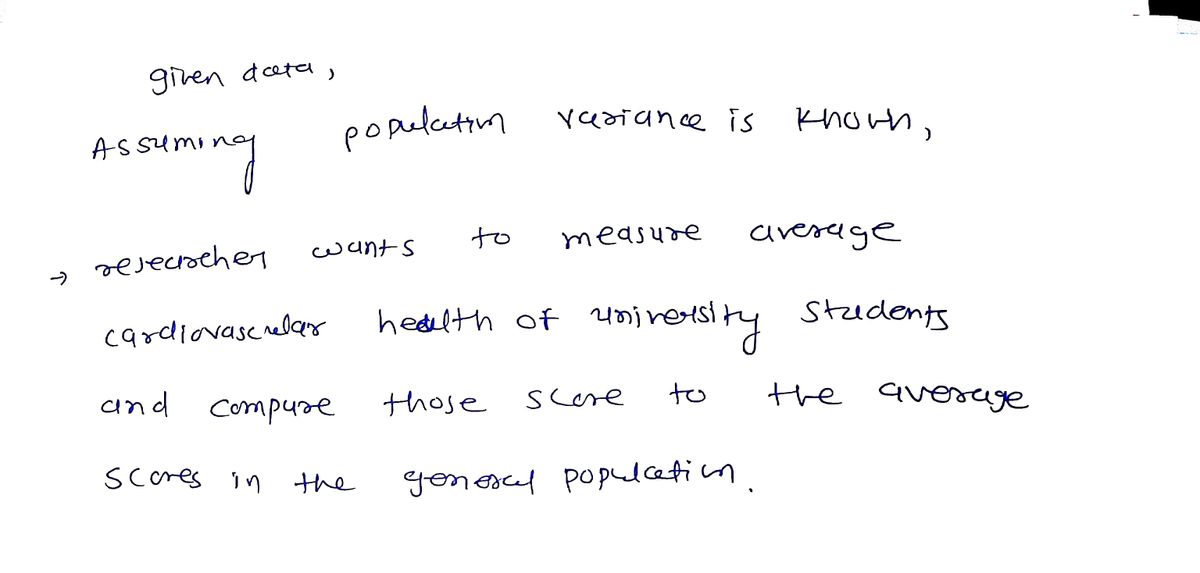 given data,
Assuming population variance is known,
→ researcher wants to measure average
cardiovascular health of university students
and compare those score to the average
scores in the general population.